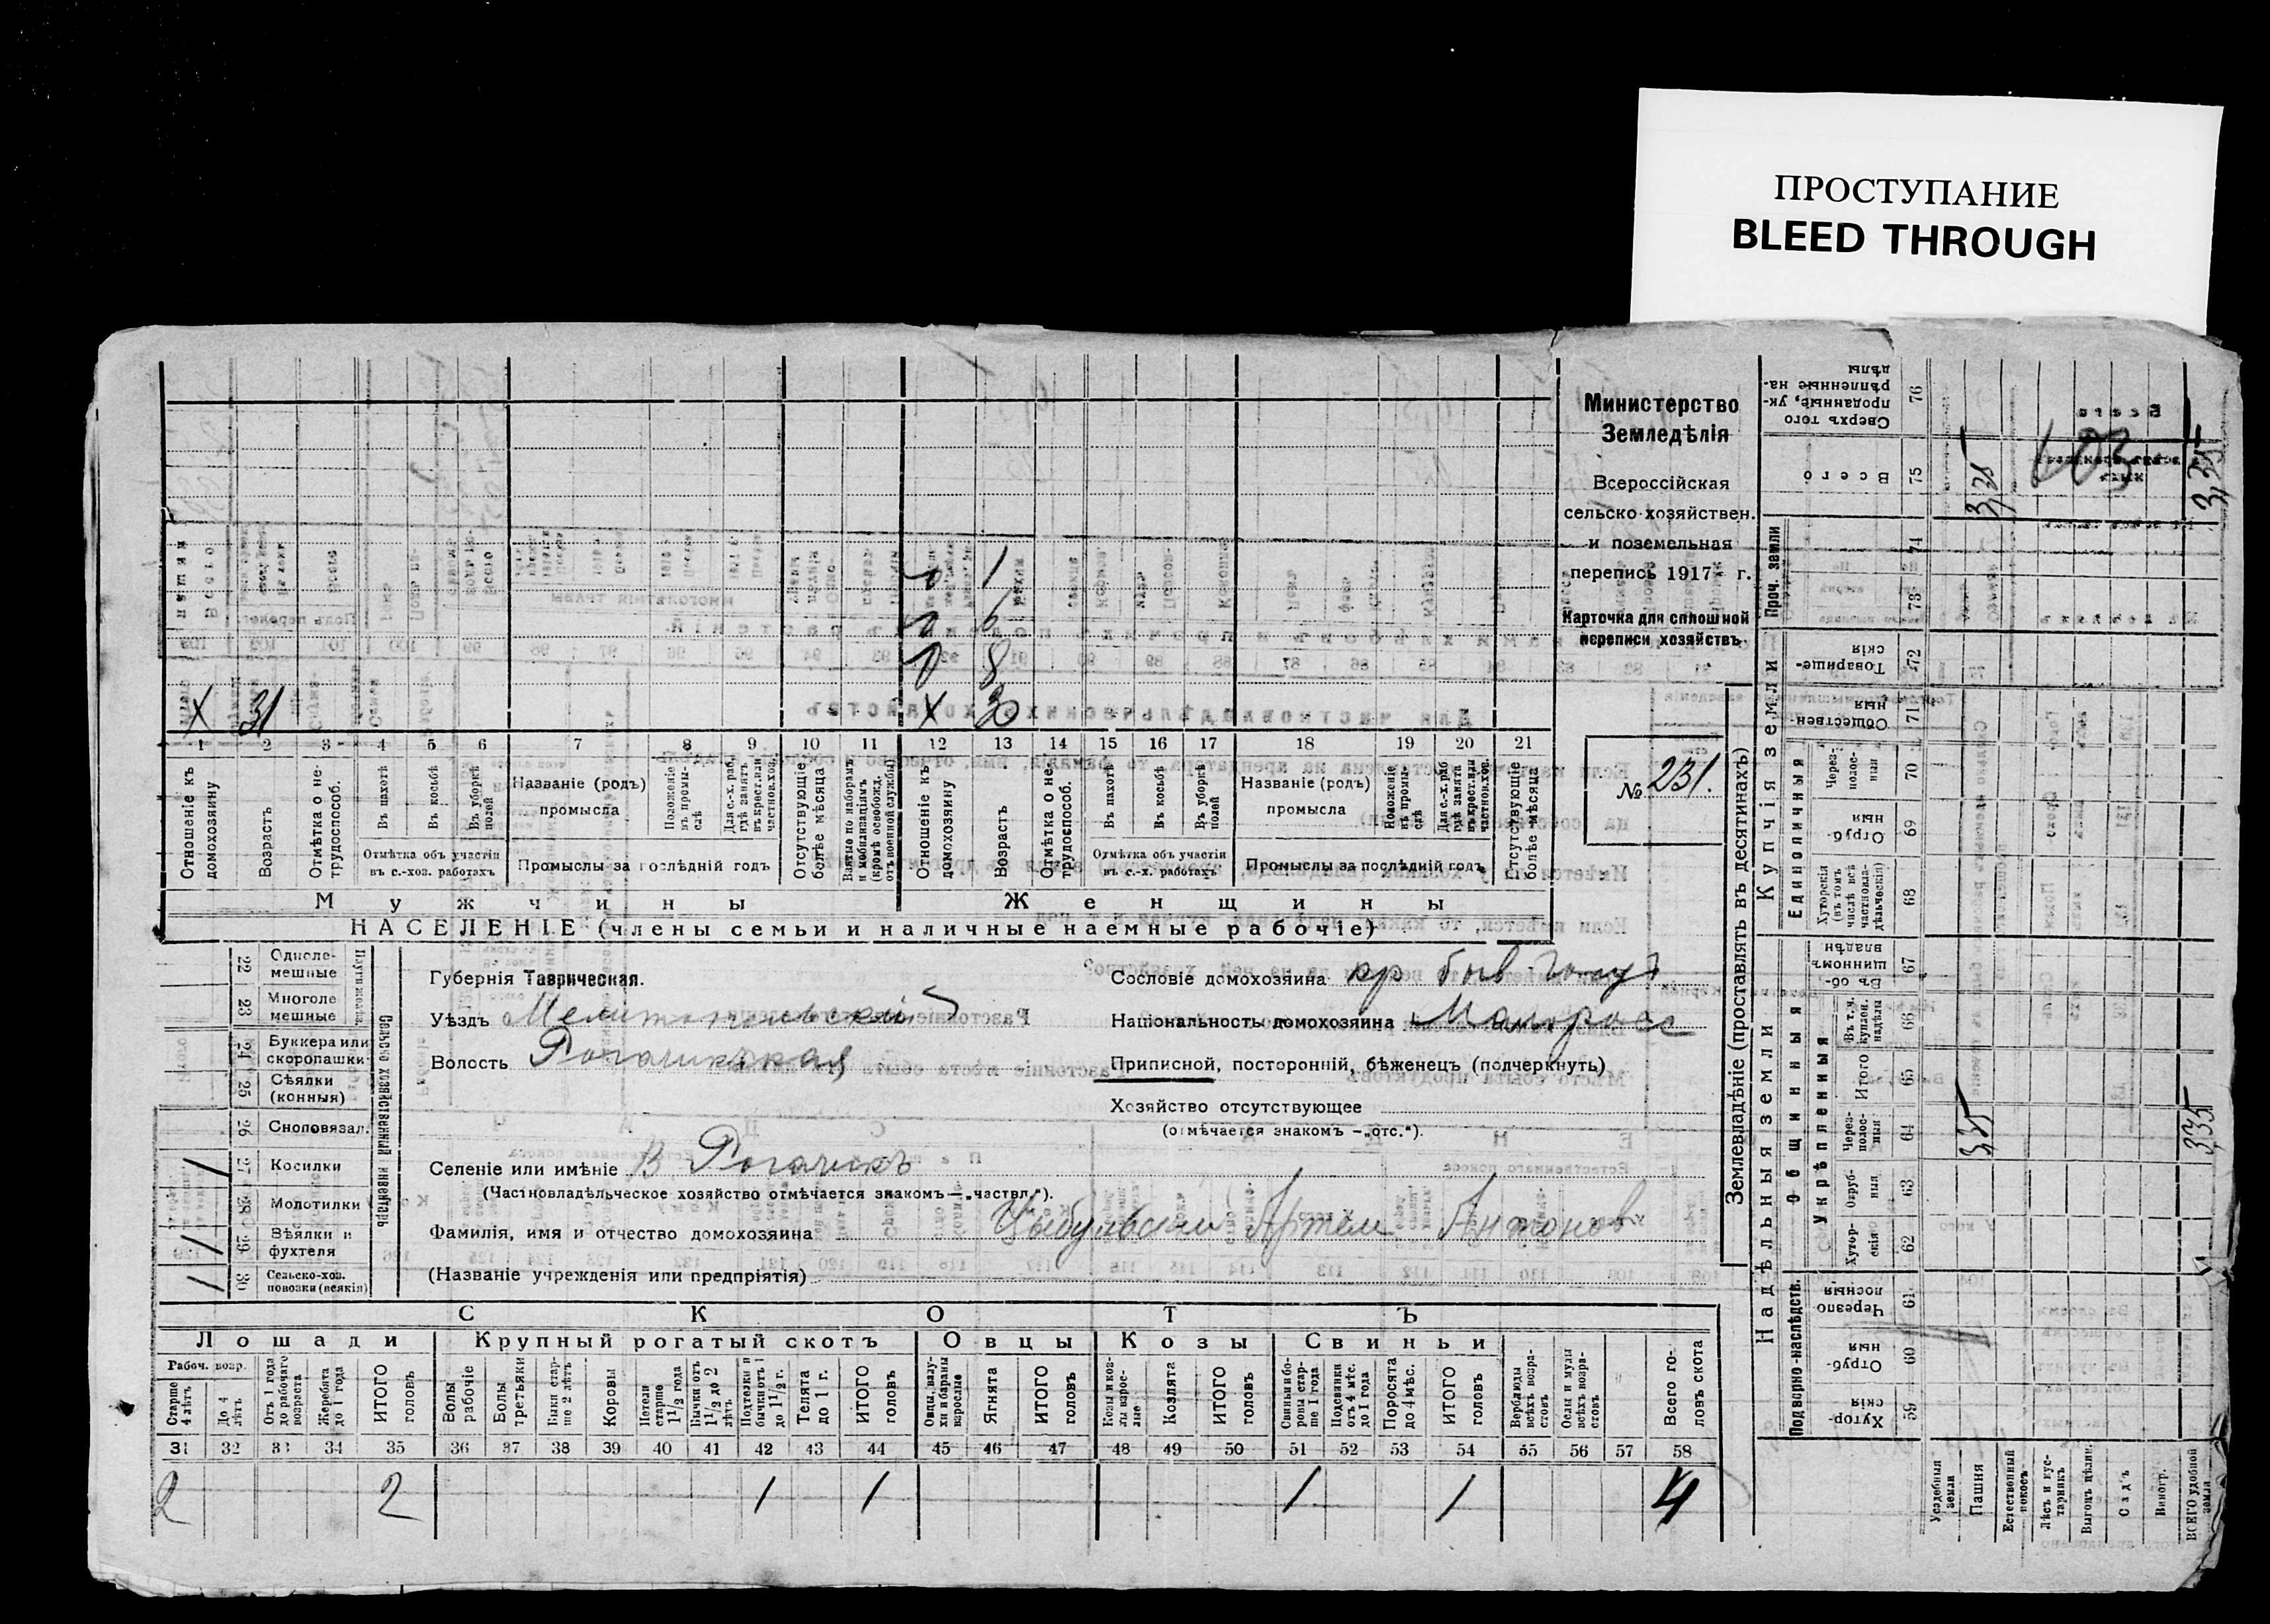 ПРОСТУПАНИЕ
BLEED THROUGH
Министерство
Земледѣлія
Всероссійская
сельско-хозяйствен.
и поземельная
перепись 1917 г.
Карточка для сплошной
переписи хозяйствъ
№ 231.
0 1
0 6
0 8
X 31 X 30
1 2 3 4 5 6 7 8 9 10 11 12 13 14 15 16 17 18 19 20 21
Отношеніе къ домохозяину
Возрастъ
Отмѣтка о не-трудоспособ.
Въ пахотѣ
Въ косьбѣ
Въ уборкѣ полей
Отмѣтка объ участіи въ с.-хоз. работахъ
Названіе (родъ) промысла
Положеніе въ промы-слѣ
Для с.-х. раб. гдѣ занятъ въ крест. или частнов. хоз.
Промыслы за послѣдній годъ
Отсутствующіе болѣе мѣсяца
Взятые по наборамъ и мобилизаціямъ (кромѣ освобожд. отъ военной службы)
Отношеніе къ домохозяину
Возрастъ
Отмѣтка о не-трудоспособ.
Въ пахотѣ
Въ косьбѣ
Въ уборкѣ полей
Отмѣтка объ участіи въ с.-х. работахъ
Названіе (родъ) промысла
Положеніе въ промы-слѣ
Для с.-х. раб. гдѣ занята въ крест. или частнов. хоз.
Промыслы за послѣдній годъ
Отсутствующіе болѣе мѣсяца
Мужчины Женщины
НАСЕЛЕНІЕ (члены семьи и наличные наемные рабочіе)
Сельско-хозяйственный инвентарь
22 Однолемешные
23 Многолемешные
24 Буккера или скоропашки
25 Сѣялки (конныя)
26 Сноповязал.
27 Косилки 1
28 Молотилки
29 Вѣялки и фухтеля 1
30 Сельско-хоз. повозки (всякія) 1
Губернія Таврическая.
Уѣздъ Мелитопольскій
Волость Рогачикская
Селеніе или имѣніе В Рогачикъ
(Частновладѣльческое хозяйство отмѣчается знакомъ—„частвл.“).
Фамилія, имя и отчество домохозяина Цыбульски Артем Антонов
(Названіе учрежденія или предпріятія)
Сословіе домохозяина кр быв госуд
Національность домохозяина Малоросс
Приписной, посторонній, бѣженецъ (подчеркнуть)
Хозяйство отсутствующее
(отмѣчается знакомъ —„отс.“).
СКОТЪ
Лошади Крупный рогатый скотъ Овцы Козы Свиньи
Рабоч. возр.
Старше 4 лѣтъ
До 4 лѣтъ
Отъ 1 года до рабочаго возраста
Жеребята до 1 года
ИТОГО головъ
Волы рабочіе
Волы третьяки
Быки стар-ше 2 лѣтъ
Коровы
Нетели старше 1 1/2 года
Бычки отъ 1 1/2 до 2 лѣтъ
Подтелки и бычки отъ 1 до 1 1/2 г.
Телята до 1 г.
ИТОГО головъ
Овцы, валу-хи и бараны взрослые
Ягнята
ИТОГО головъ
Козы и коз-лы взрос-лые
Козлята
ИТОГО головъ
Свиньи и бо-ровы стар-ше 1 года
Подсвинки отъ 4 мѣс. до 1 года
Поросята до 4 мѣс.
ИТОГО головъ
Верблюды всѣхъ возра-стовъ
Ослы и мулы всѣхъ возра-стовъ
Всего го-ловъ скота
31 32 33 34 35 36 37 38 39 40 41 42 43 44 45 46 47 48 49 50 51 52 53 54 55 56 57 58
2 2 1 1 1 1 4
Землевладѣніе (проставлять въ десятинахъ)
Надѣльныя земли
Купчія земли
Проч. земли
Подворно-наслѣдств.
Общинныя
Укрѣпленныя
Единоличныя
Сверхъ того проданные, ук-рѣпленные на-дѣлы 76
Всего 75
74
73
Товарище-скія 72
Обществен-ныя 71
Через-полос-ныя 70
Отруб-ныя 69
Хуторскія (въ томъ числѣ всѣ частновла-дѣльческія) 68
Въ об-щинномъ владѣн. 67
Въ т. ч. куплен. надѣлы 66
Итого 65
Через-полос-ныя 64
Отруб-ныя 63
Хутор-скія 62
Черезпо-лосныя 61
Отруб-ныя 60
Хутор-скія 59
Усадебныя земли
Пашня
Естественный покосъ
Лѣсъ и кус-тарникъ
Выгонъ цѣлин.
Садъ
Виногр.
ВСЕГО удобной земли
3,35 3,35
3,35 3,35